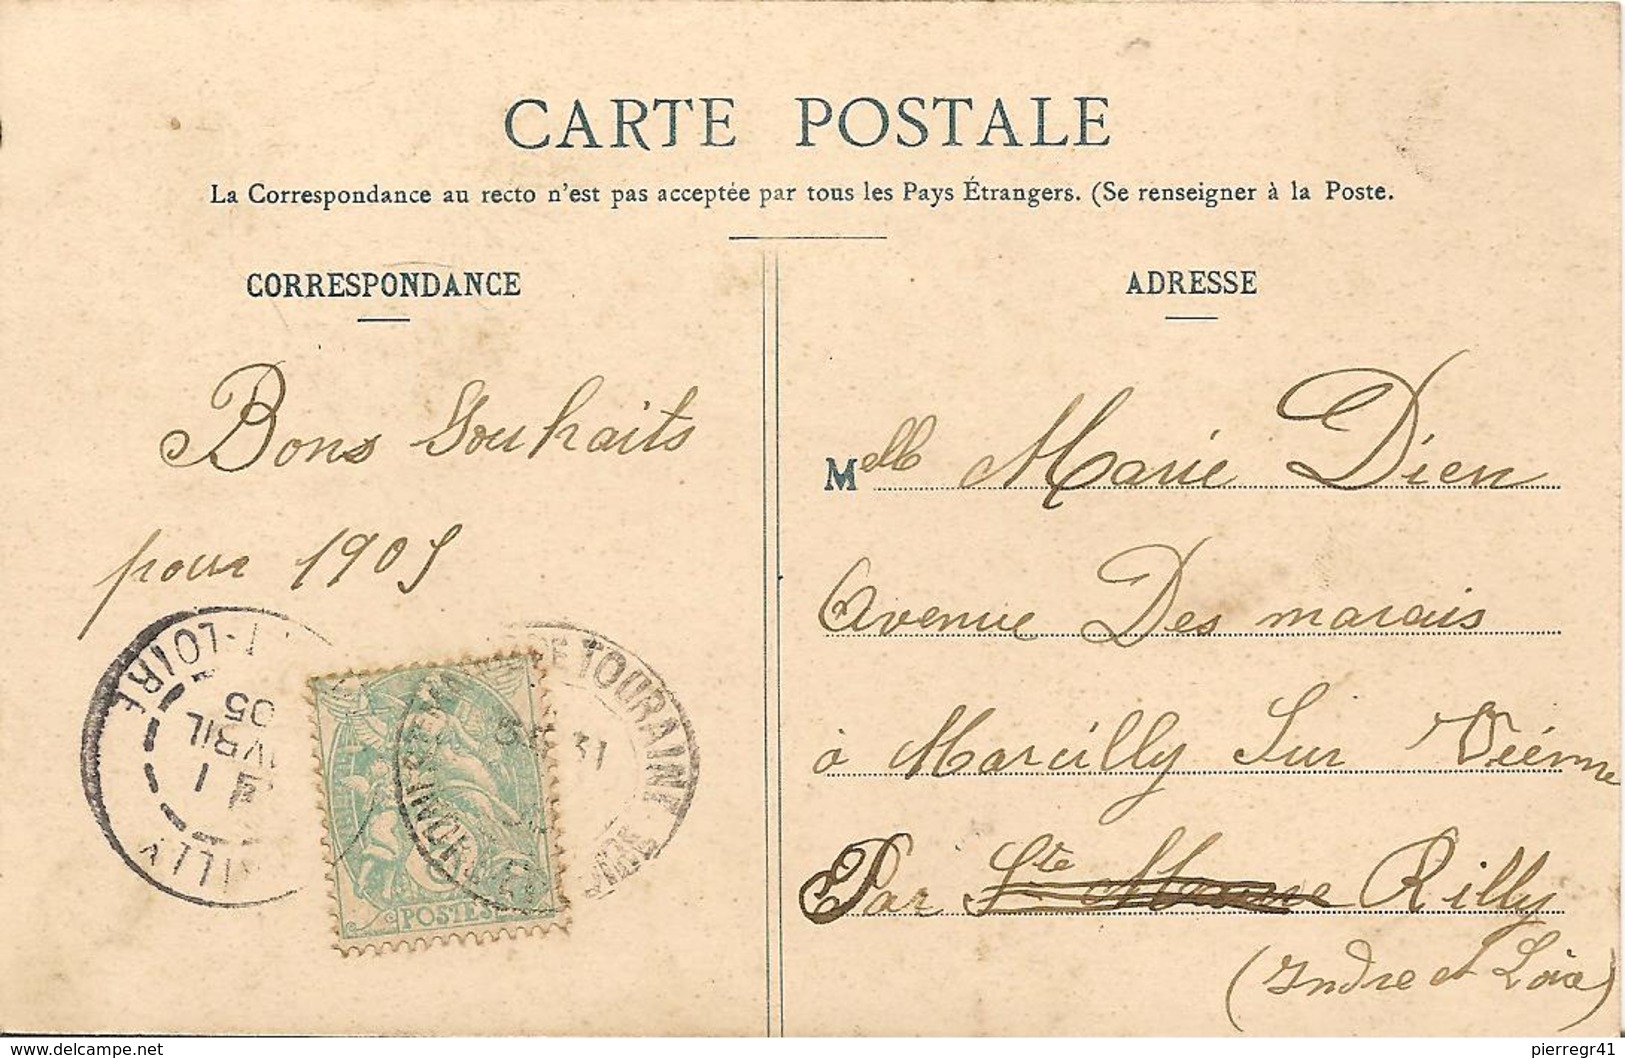 CARTE POSTALE
La Correspondance au recto n'est pas acceptée par tous les Pays Étrangers. (Se renseigner à la Poste.
CORRESPONDANCE
Bons Souhaits
pour 1905
ADRESSE
Melle Marie Dien
Avenue Des marais
à Marcilly Sur Viénne
Par Ste Maure Rilly
(Indre et Loire)
I-LOIRE
1
AVRIL
05
ILLY
TOURAINE
31
POSTES
www.delcampe.net
pierregr41